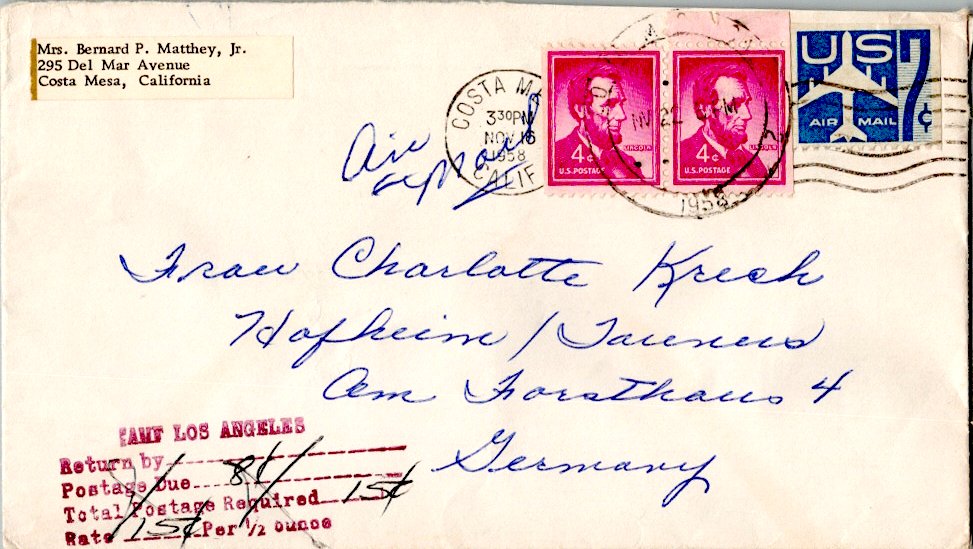 Mrs. Bernard P. Matthey, Jr.
295 Del Mar Avenue
Costa Mesa, California
COSTA
3 30 PM
NOV 16
1958
CALIF
4¢
LINCOLN
U.S. POSTAGE
4¢
LINCOLN
U.S. POSTAGE
22
PM
1958
US
7¢
AIR MAIL
Air
Frau Charlotte Krech
Hofheim / Taunus
Am Forsthaus 4
Germany
AMF LOS ANGELES
Return by
Postage Due 8¢
Total Postage Required 15¢
Rate 15¢ Per 1/2 ounce